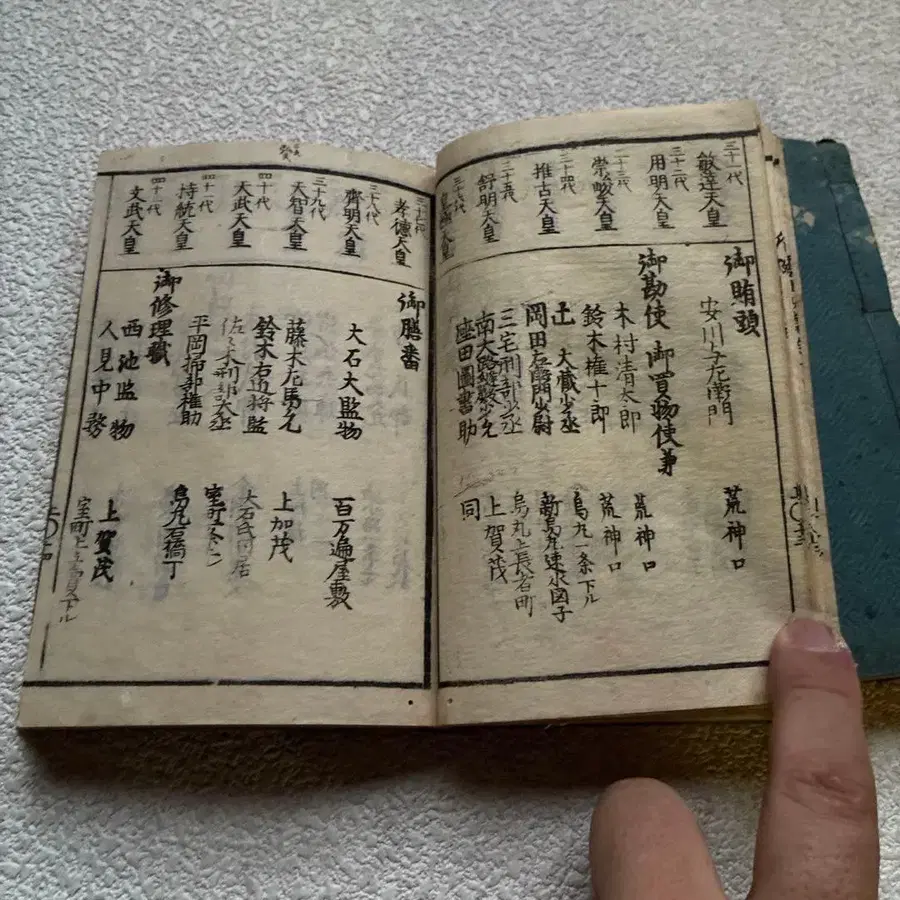 三十一代
敏達天皇
三十二代
用明天皇
三十三代
崇峻天皇
三十四代
推古天皇
三十五代
舒明天皇
三十六代
御賄頭
安川与左衛門
荒神口
御勘使 御買物使兼
木村清太郎
荒神口
鈴木権十郎
荒神口
土 大蔵少丞
烏丸一条下ル
岡田左衛門少尉
三宅刑部少丞
烏丸上長者町
南大路
上賀茂
座田圖書助
同
三十七代
孝德天皇
三十八代
齊明天皇
三十九代
天智天皇
四十代
天武天皇
四十一代
持統天皇
四十二代
文武天皇
御膳番
大石大監物
百万遍屋敷
藤木左馬允
上加茂
鈴木右近将監
大石氏同居
佐々木刑部大丞
平岡掃部権助
烏丸石橋丁
御修理職
西池監物
上賀茂
人見中務